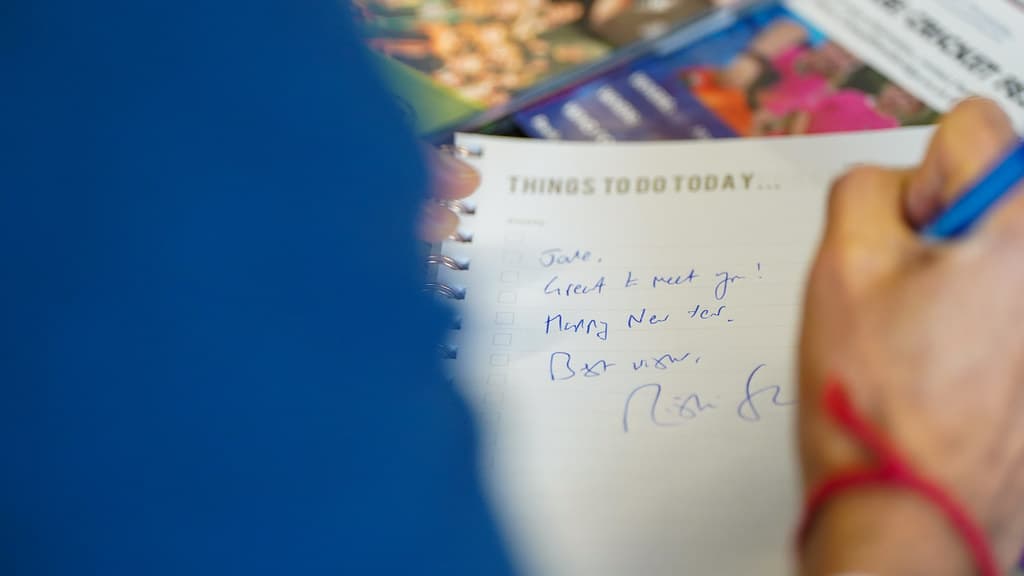 THINGS TO DO TODAY...
Jane,
Great to meet you!
Happy New Year.
Best wishes,
Rishi